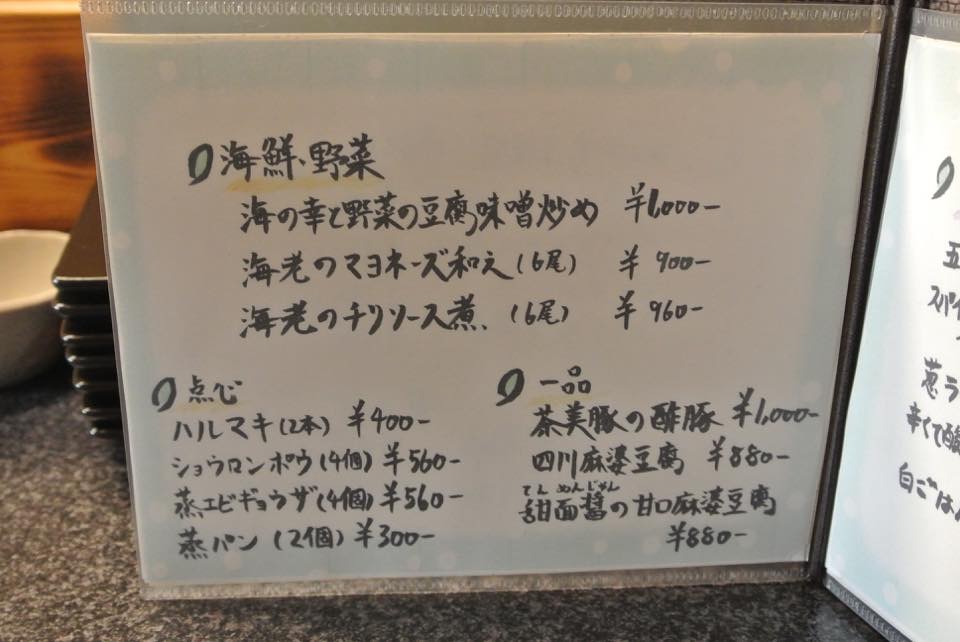 海鮮、野菜
海の幸と野菜の豆腐味噌炒め ¥1,000-
海老のマヨネーズ和え(6尾) ¥900-
海老のチリソース煮(6尾) ¥960-
点心
ハルマキ(2本) ¥400-
ショウロンポウ(4個) ¥560-
蒸エビギョウザ(4個) ¥560-
蒸パン(2個) ¥300-
一品
茶美豚の酢豚 ¥1,000-
四川麻婆豆腐 ¥880-
てん めんじゃん
甜面醤の甘口麻婆豆腐
¥880-
五
スパイ
葱ラ
辛くて酸
白ごはん